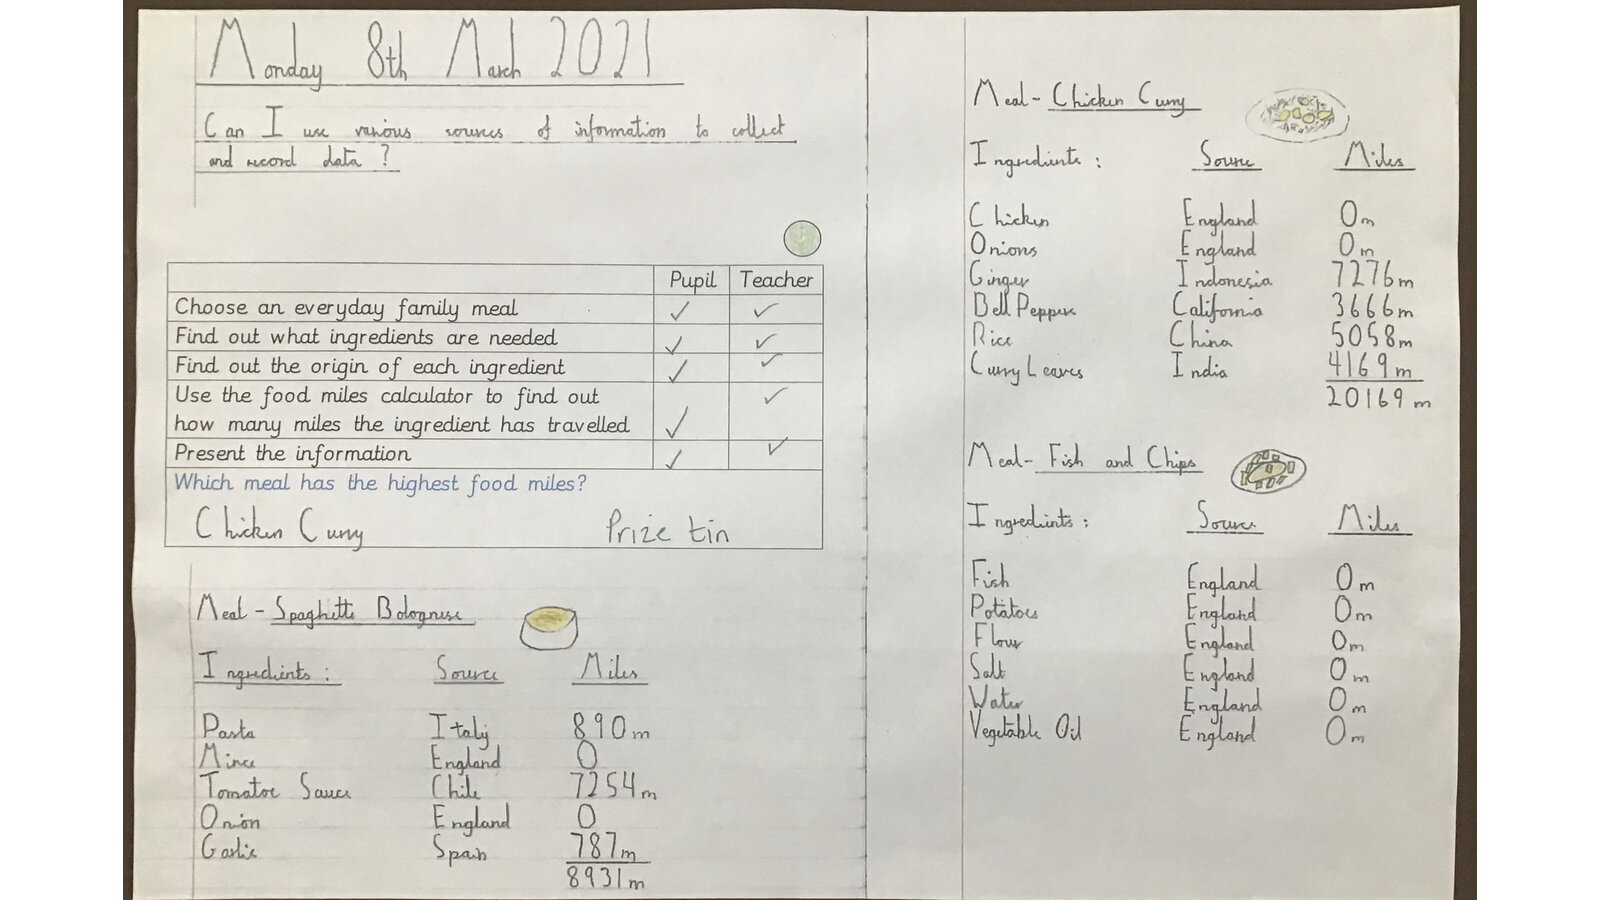 Monday 8th March 2021
Can I use various sources of information to collect
and record data?
Pupil Teacher
Choose an everyday family meal ✓ ✓
Find out what ingredients are needed ✓ ✓
Find out the origin of each ingredient ✓ ✓
Use the food miles calculator to find out
how many miles the ingredient has travelled ✓ ✓
Present the information ✓ ✓
Which meal has the highest food miles?
Chicken Curry Prize tin
Meal - Spaghetti Bolognese
Ingredients : Source Miles
Pasta Italy 890m
Mince England 0
Tomatoe Sauce Chile 7254m
Onion England 0
Garlic Spain 787m
8931m
Meal - Chicken Curry
Ingredients : Source Miles
Chicken England 0m
Onions England 0m
Ginger Indonesia 7276m
Bell Peppers California 3666m
Rice China 5058m
Curry Leaves India 4169m
20169m
Meal - Fish and Chips
Ingredients : Source Miles
Fish England 0m
Potatoes England 0m
Flour England 0m
Salt England 0m
Water England 0m
Vegetable Oil England 0m